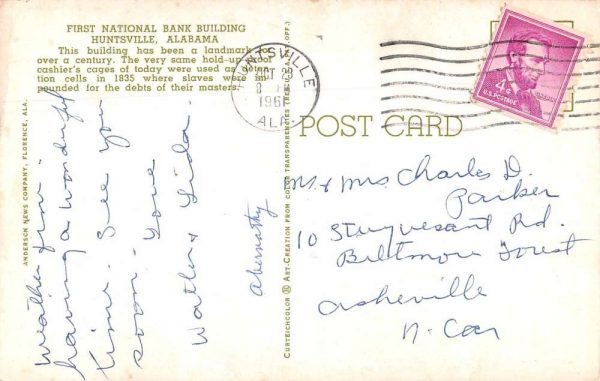 FIRST NATIONAL BANK BUILDING
HUNTSVILLE, ALABAMA
This building has been a landmark for
over a century. The very same hold-up proof
cashier's cages of today were used as deten-
tion cells in 1835 where slaves were im-
pounded for the debts of their masters.
weather fine.
having a wonderful
time. See you
soon. Love
Walter & Lida
Abernathy
ANDERSON NEWS COMPANY, FLORENCE, ALA.
CURTEICHCOLOR ® ART-CREATION FROM COLOR TRANSPARENCIES (REG. U.S.A. PAT. OFF.)
HUNTSVILLE
1961
ALA.
4¢
U.S. POSTAGE
POST CARD
Mr & Mrs Charles D.
Parker
10 Stuyvesant Rd.
Biltmore Forest
Asheville
N. Car